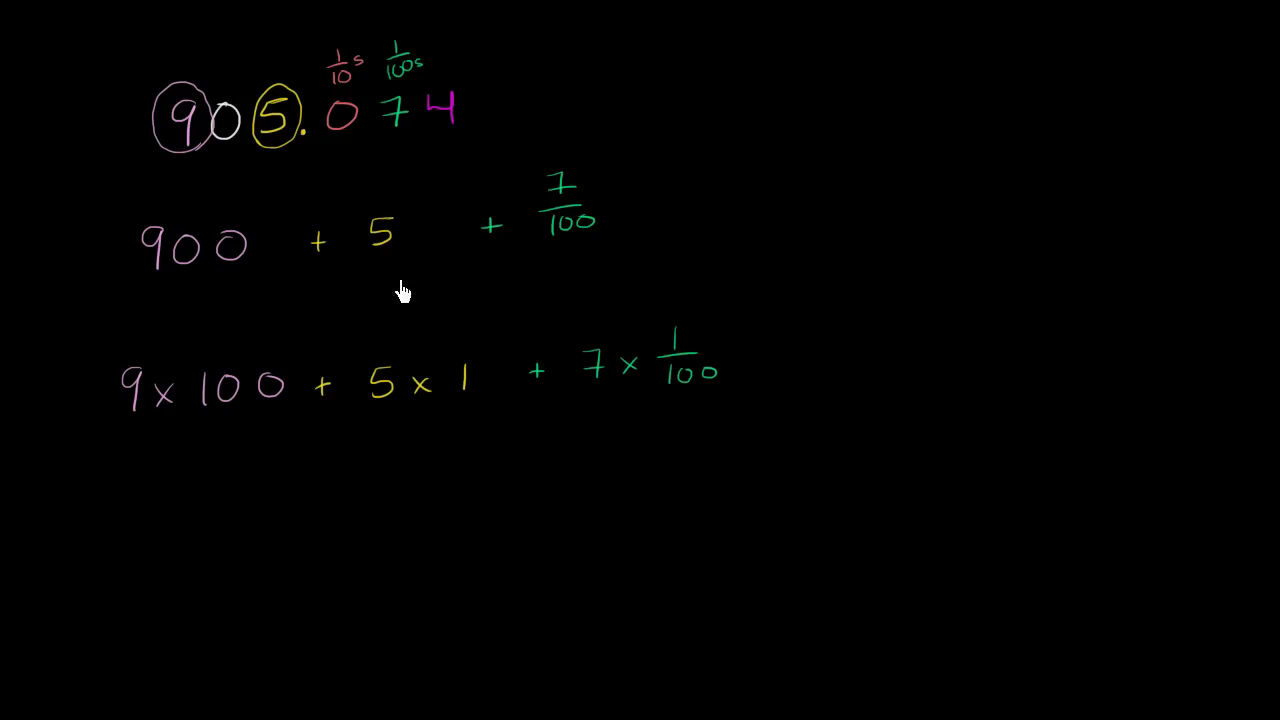 1/10 s 1/100s
905.074
900 + 5 + 7/100
9 x 100 + 5 x 1 + 7 x 1/100